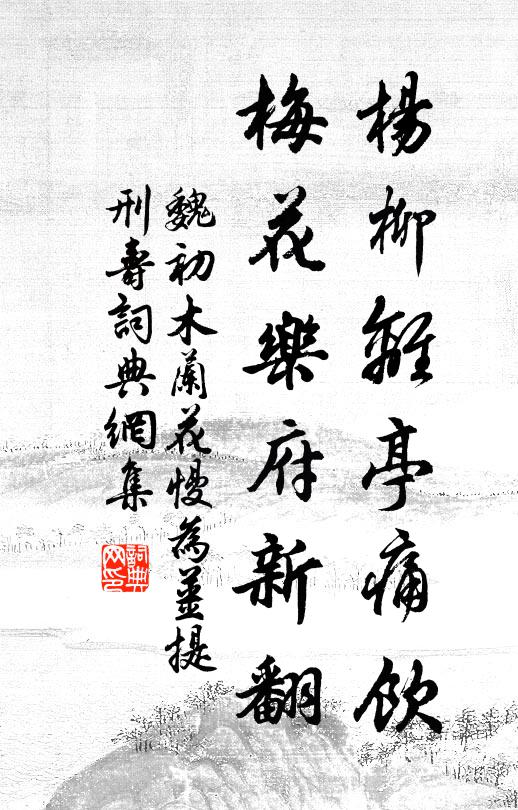 楊柳離亭痛飲
梅花樂府新翻
魏初木蘭花慢為姜提
刑壽詞典網集
詞典
网印